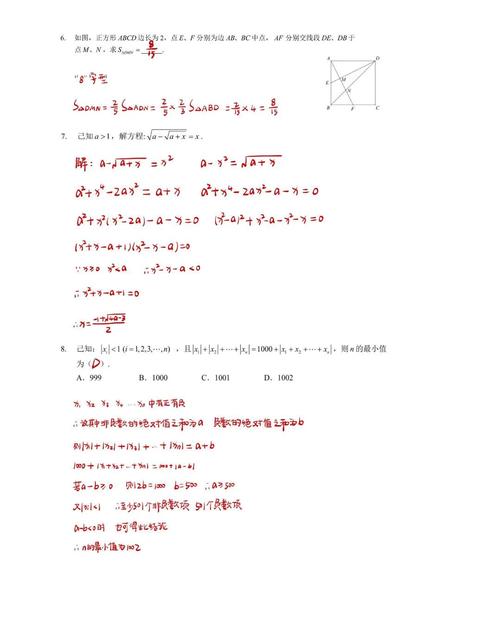 6. 如图，正方形 ABCD 边长为 2，点 E、F 分别为边 AB、BC 中点， AF 分别交线段 DE、DB 于
点 M、N ，求 S△DMN = 8/15 .
A D
E M
N
B F C
"8"字型
S△DMN = 2/5 S△ADN = 2/5 × 2/3 S△ABD = 2/15 × 4 = 8/15
7. 已知 a > 1，解方程: √(a − √(a + x)) = x .
解: a−√(a+x) = x² a−x² = √(a+x)
a²+x⁴−2ax² = a+x a²+x⁴−2ax²−a−x=0
a²+x²(x²−2a)−a−x=0 (x²−a)²+x²−a−x²−x=0
(x²+x−a+1)(x²−x−a)=0
∵x≥0 x²<a ∴x²−x−a<0
∴x²+x−a+1=0
∴x = (−1+√(4a−3))/2
8. 已知: |xᵢ| < 1 (i = 1,2,3,⋯,n) ，且 |x₁| + |x₂| + ⋯ + |xₙ| = 1000 + x₁ + x₂ + ⋯ + xₙ| ，则 n 的最小值
为（D）.
A．999 B．1000 C．1001 D．1002
x₁ x₂ x₃ x₄ … xₙ 中有正有负
∴设其中非负数的绝对值之和为a 负数的绝对值之和为b
则|x₁|+|x₂|+|x₃|+ … +|xₙ| = a+b
1000+|x₁+x₂+ … +xₙ| = 1000+|a−b|
若a−b≥0 则2b=1000 b=500 ∴a≥500
又|xᵢ|<1 ∴至少501个非负数项 501个负数项
a−b<0时 也可得此结论
∴n的最小值为1002